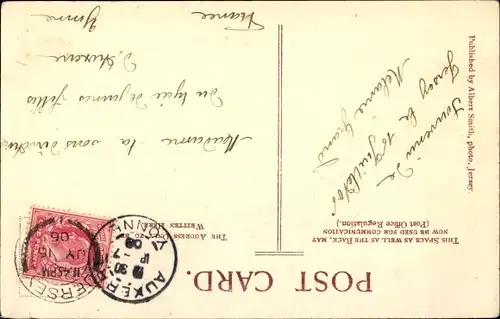 POST CARD.
THIS SPACE AS WELL AS THE BACK, MAY
NOW BE USED FOR COMMUNICATION
(Post Office Regulation.)
THE ADDRESS ONLY TO BE
WRITTEN HERE.
Souvenir de
Jersey le
Melanie
Madame la sous
du lycée de jeunes filles
d'Auxerre
Yonne
France
JERSEY
JY 16
06
AUXERRE
YONNE
Published by Albert Smith, photo, Jersey.